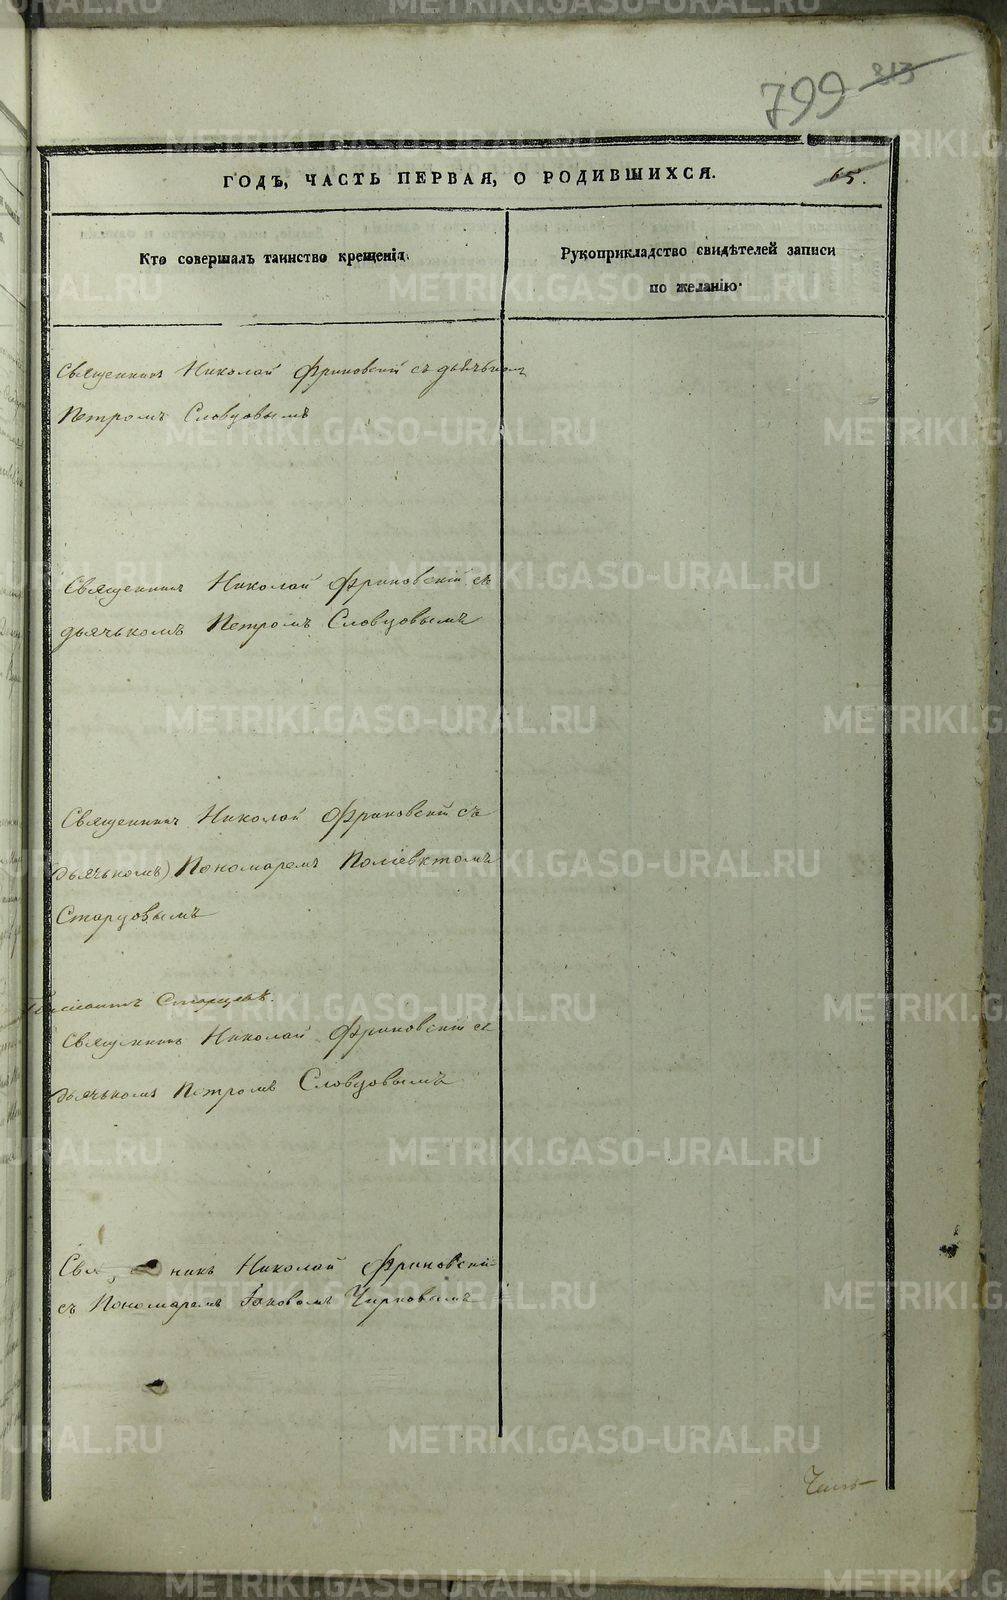 799 813
ГОДЪ, ЧАСТЬ ПЕРВАЯ, О РОДИВШИХСЯ.
65.
Кто совершалъ таинство крещенія.
Рукоприкладство свидѣтелей записи
по желанію.
Священникъ Николай Фриновскій съ дьячькомъ
Петромъ Словцовымъ
Священникъ Николай Фриновскій съ
дьячькомъ Петромъ Словцовымъ
Священникъ Николай Фриновскій съ
(дьячькомъ) Пономаремъ Поліевктомъ
Старцовымъ
Старцевъ.
Священникъ Николай Фриновскій съ
дьячькомъ Петромъ Словцовымъ
Свя никъ Николай Фриновскій
съ Пономаремъ Іаковомъ Чирковымъ
METRIKI.GASO-URAL.RU